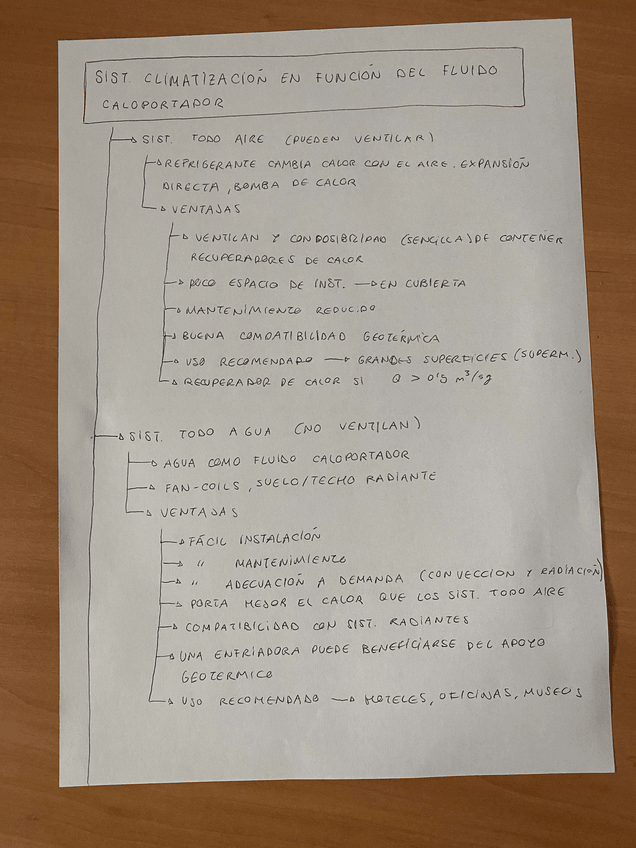 SIST. CLIMATIZACIÓN EN FUNCIÓN DEL FLUIDO
CALOPORTADOR
SIST. TODO AIRE (PUEDEN VENTILAR)
REFRIGERANTE CAMBIA CALOR CON EL AIRE. EXPANSIÓN
DIRECTA, BOMBA DE CALOR
VENTAJAS
VENTILAN Y CON POSIBILIDAD (SENCILLA) DE CONTENER
RECUPERADORES DE CALOR
POCO ESPACIO DE INST. → EN CUBIERTA
MANTENIMIENTO REDUCIDO
BUENA COMPATIBILIDAD GEOTÉRMICA
USO RECOMENDADO → GRANDES SUPERFICIES (SUPERM.)
RECUPERADOR DE CALOR SI Q > 0'5 m³/sg
SIST. TODO AGUA (NO VENTILAN)
AGUA COMO FLUIDO CALOPORTADOR
FAN-COILS, SUELO/TECHO RADIANTE
VENTAJAS
FÁCIL INSTALACIÓN
" MANTENIMIENTO
" ADECUACIÓN A DEMANDA (CONVECCION Y RADIACIÓN)
PORTA MEJOR EL CALOR QUE LOS SIST. TODO AIRE
COMPATIBILIDAD CON SIST. RADIANTES
UNA ENFRIADORA PUEDE BENEFICIARSE DEL APOYO
GEOTERMICO
USO RECOMENDADO → HOTELES, OFICINAS, MUSEOS